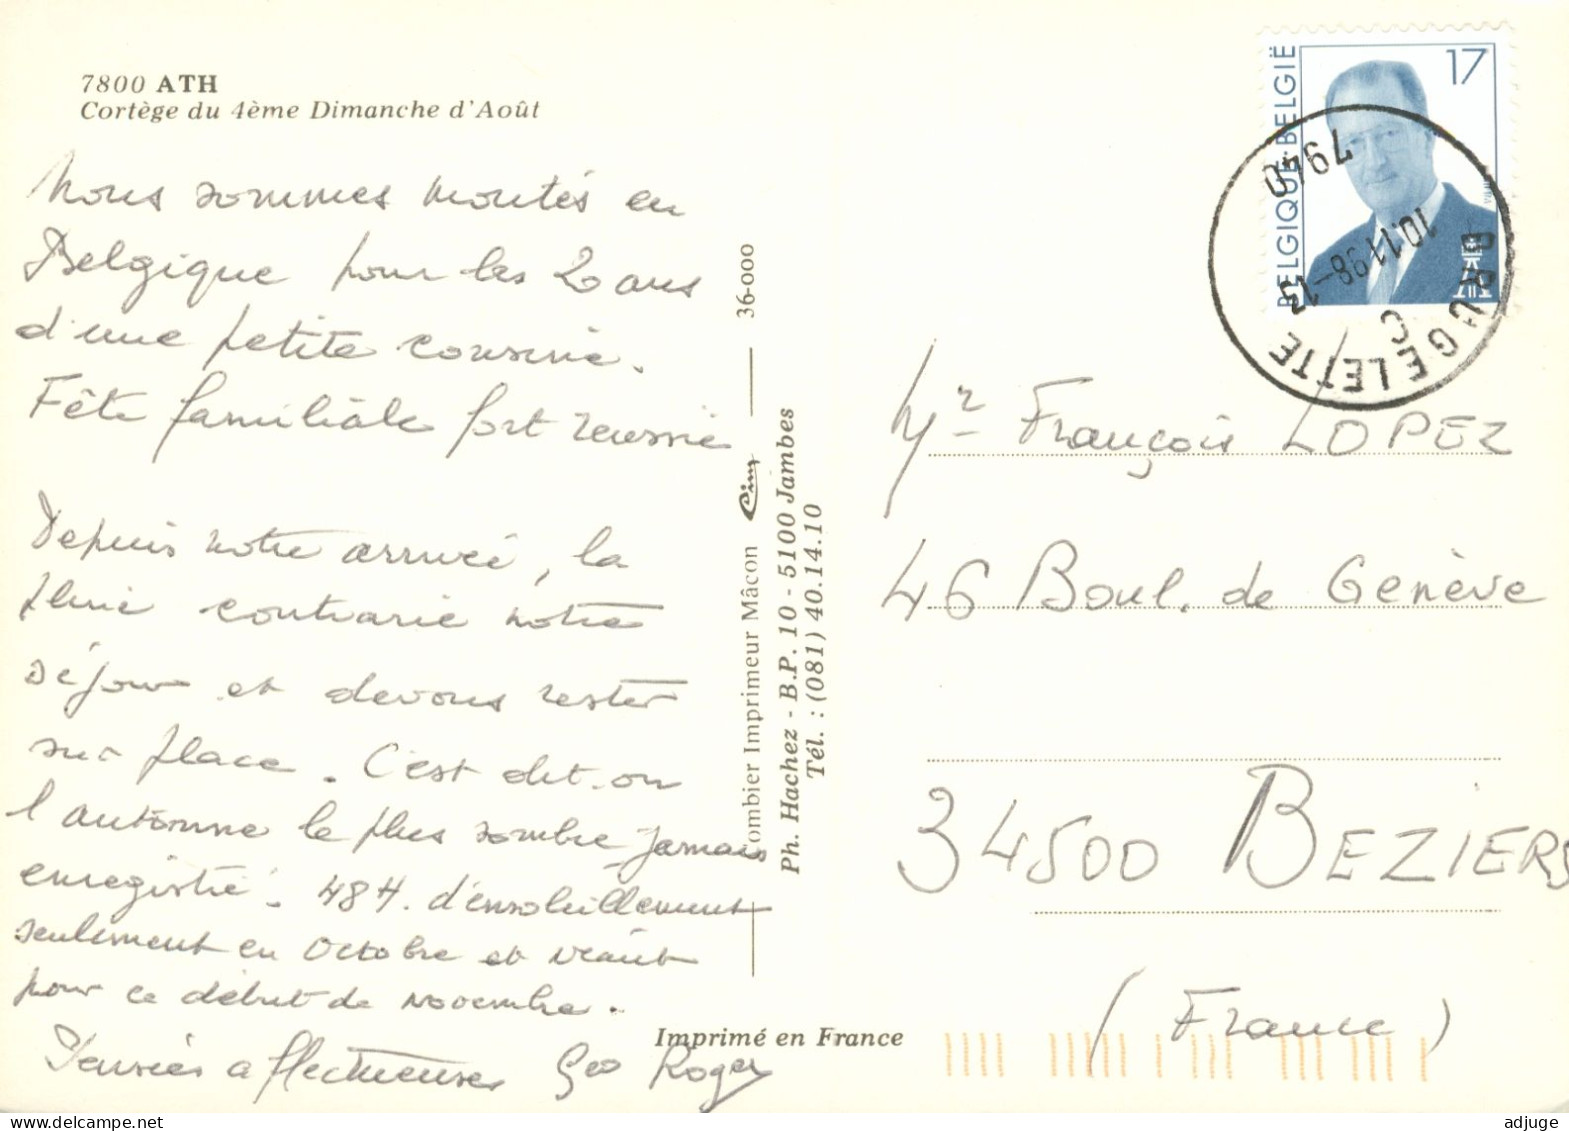 7800 ATH
Cortège du 4ème Dimanche d'Août
Nous sommes montés en
Belgique pour les 20 ans
d'une petite cousine.
Fête familiale fort réussie
Depuis notre arrivée, la
pluie contrarie notre
séjour et devons rester
sur place. C'est dit-on
l'automne le plus sombre jamais
enregistré. 48 H. d'ensoleillement
seulement en Octobre et néant
pour ce début de Novembre.
Pensées affectueuses Geo Roger
36-000
Combier Imprimeur Mâcon Cim
Ph. Hachez - B.P. 10 - 5100 Jambes
Tél. : (081) 40.14.10
Imprimé en France
BELGIQUE-BELGIË
17
MVTM
7940
10.11 98-13
C
BRUGELETTE
Mr François LOPEZ
46 Boul. de Genève
34500 BEZIERS
(France)
adjuge
www.delcampe.net